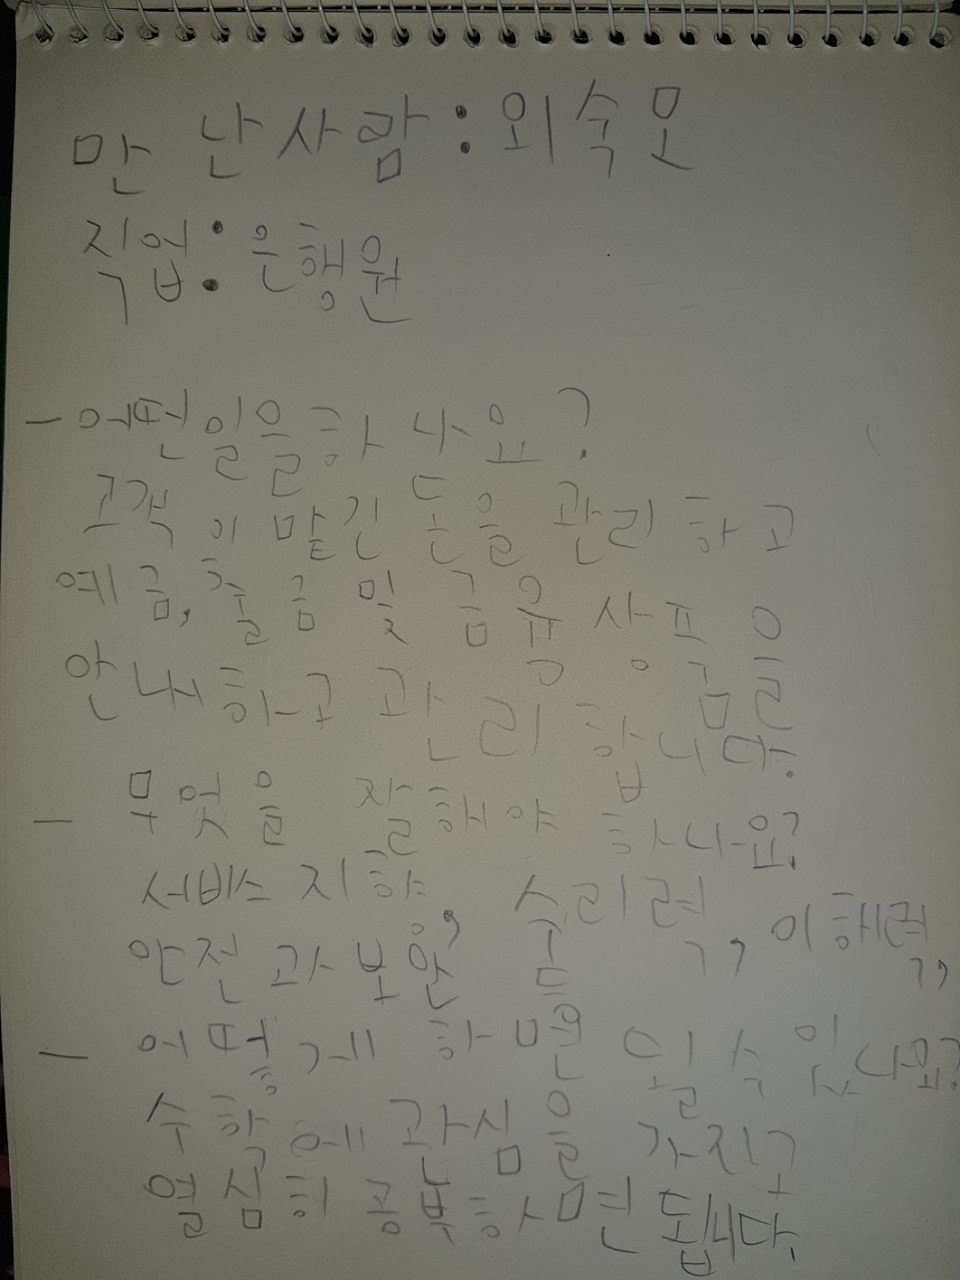 만난사람:외숙모
직업:은행원
-어떤일을하나요?
고객이 맡긴 돈을 관리하고
예금,출금 및 금융상품을
안내하고 관리합니다.
- 무엇을 잘해야 하나요?
서비스지향, 수리력, 이해력,
안전과보안,
- 어떻게 하면 될 수 있나요?
수학에 관심을 가지고
열심히 공부하시면 됩니다.